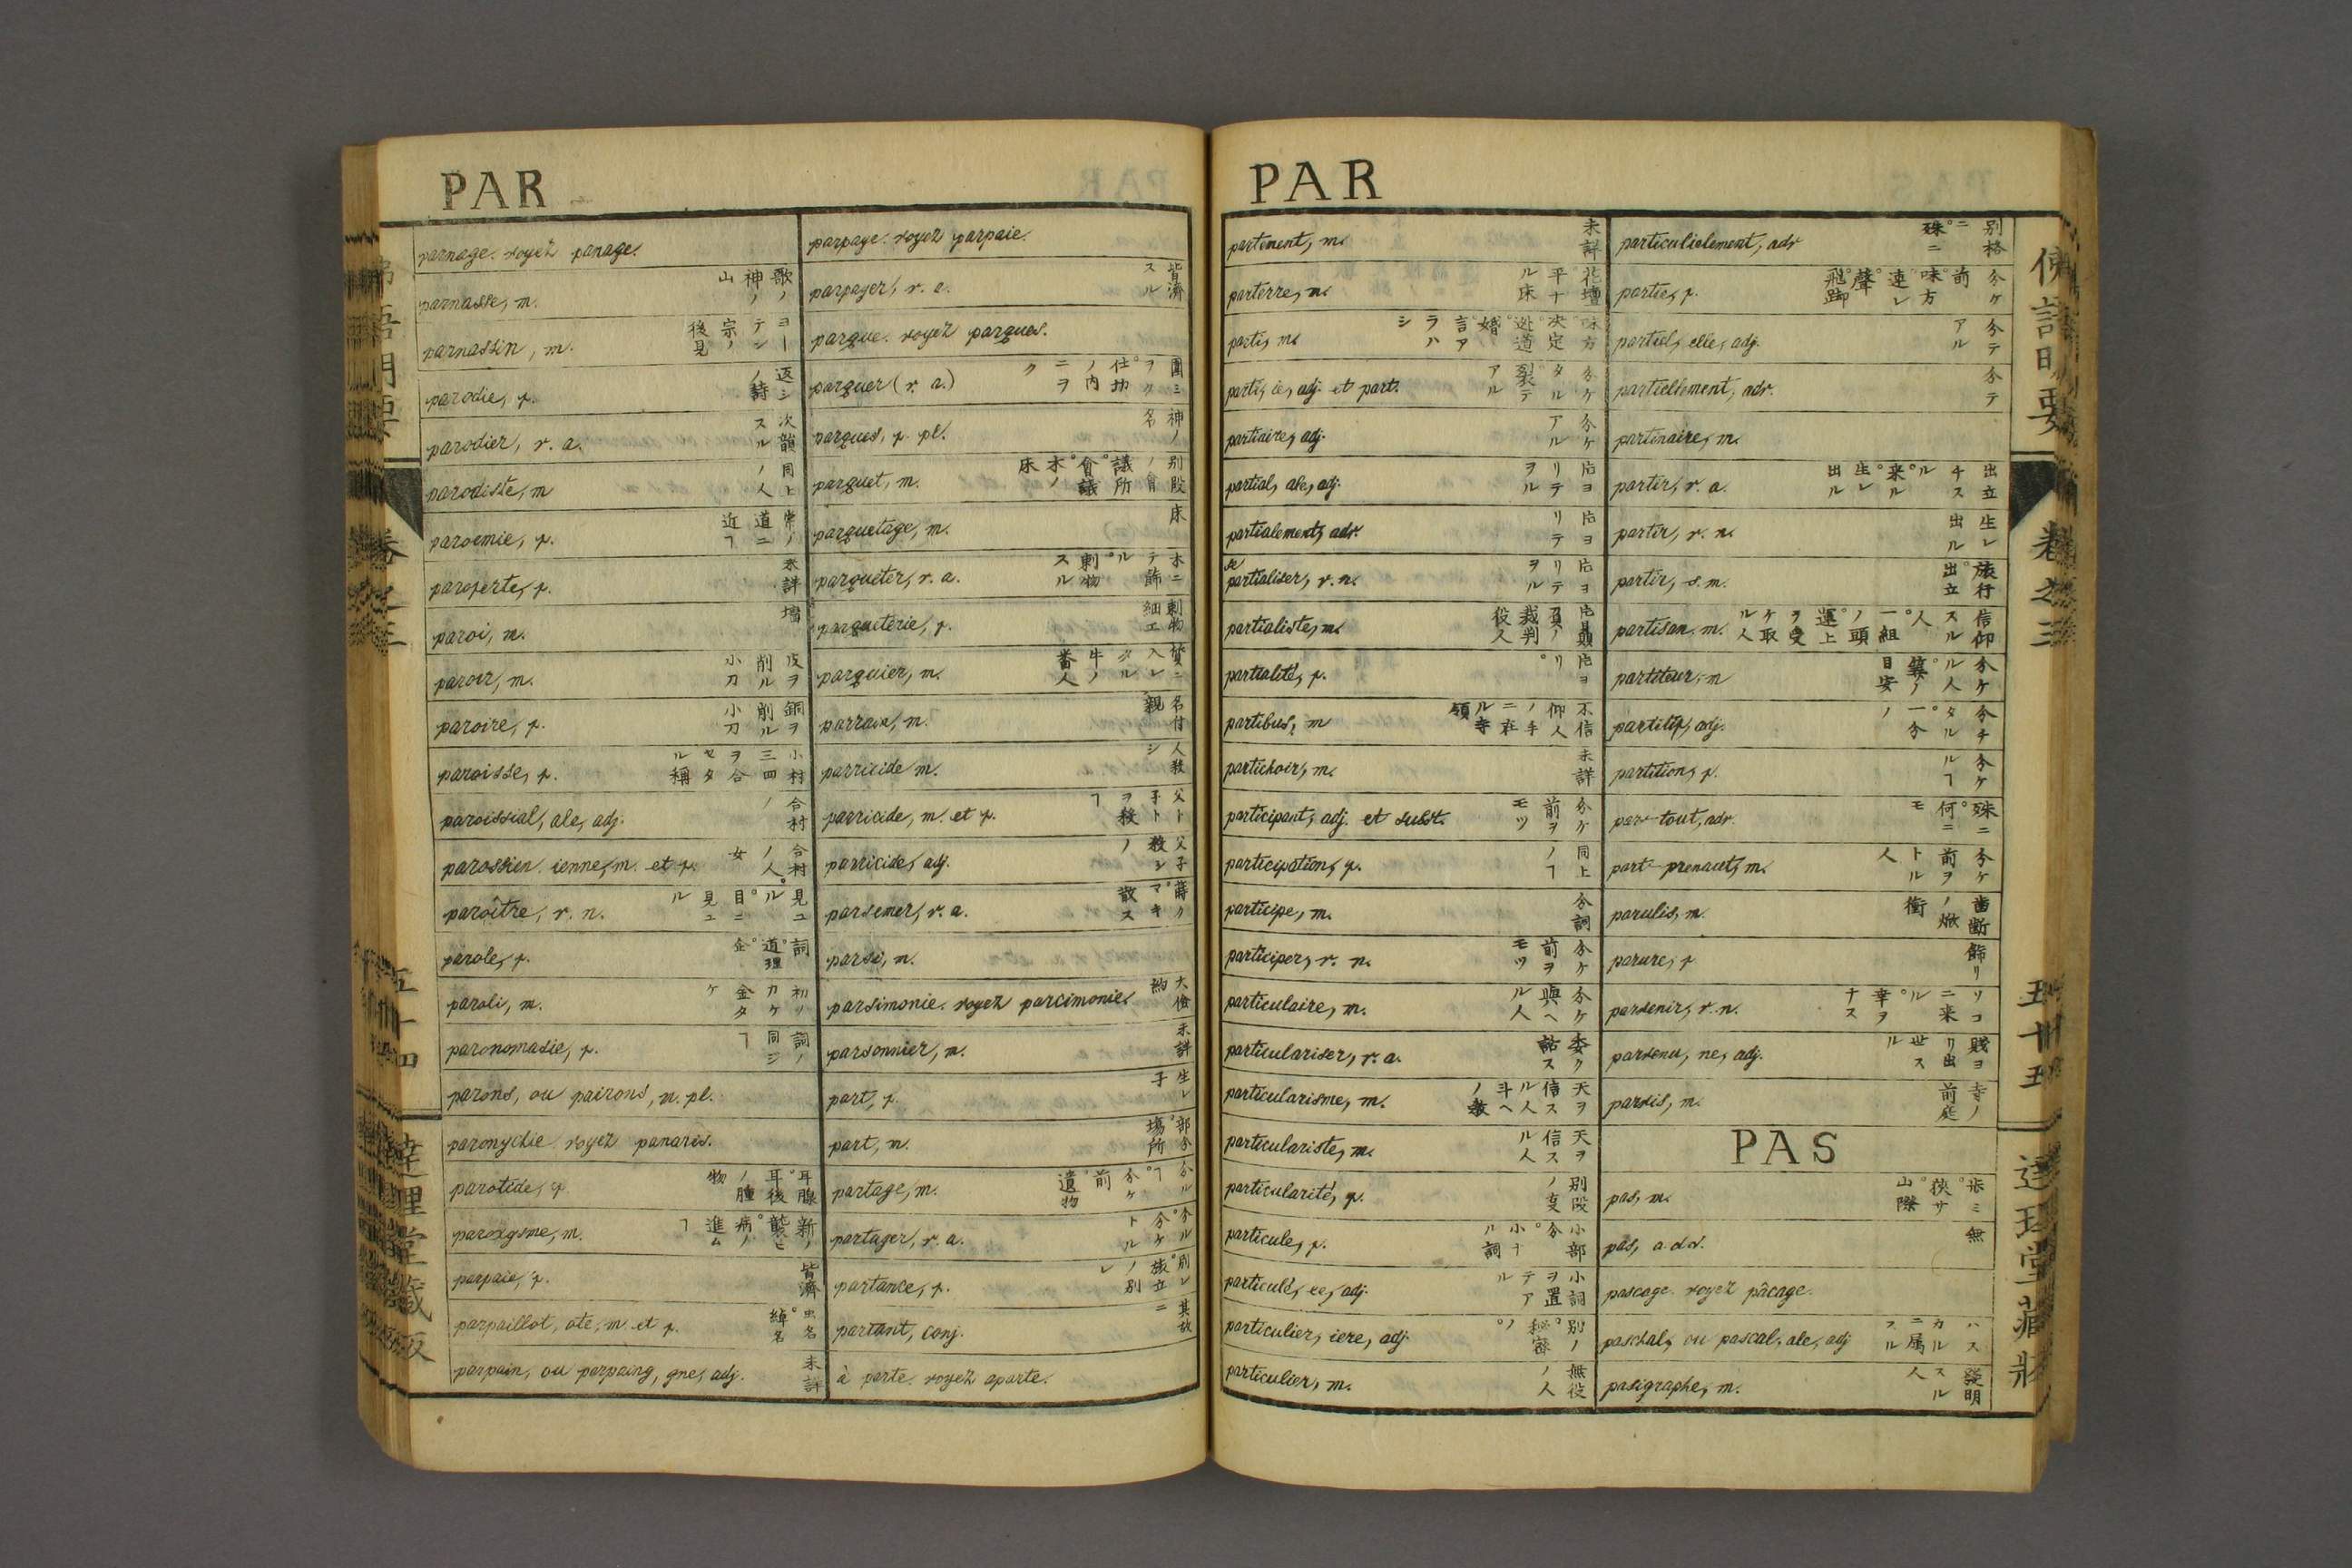 PAR
parnage. voyez panage.
parnasse, m. 歌ノ神ノ山
parnassin, m. ヨーテン宗ノ後見
parodie, f. 返シノ詩
parodier, v. a. 次韻スル
parodiste, m 同上ノ人
paroemie, f. 常ノ道ニ近ヿ
paroferte, f. 未詳
paroi, m. 墻
paroir, m. 皮ヲ削ル小刀
paroire, f. 銅ヲ削ル小刀
paroisse, f. 小村三四ヲ合セタル稱
paroissial, ale, adj. 合村ノ
parossien. ienne, m. et f. 合村ノ人女
paroître, v. n. 見ユル。目ニ見ユル
parole, f. 詞。道理。企
paroli, m. 初リカケ金タケ
paronomasie, f. 詞ノ同シヿ
parons, ou pairons, n. pl.
paronychie voyez panaris.
parotide, f. 耳腺。耳後ノ腫物
paroxysme, m. 新ノ襲ヒ。病ノ進ムヿ
parpaie, f. 皆濟
parpaillot, ote, m. et f. 虫名。綽名
parpain, ou parpaing, gne, adj. 未詳
parpaye. voyez parpaie.
parpayer, v. a. 皆濟スル
parque. voyez parques.
parquer (v. a.) 圍ミヲク。仕切ノ内ニヲク
parques, f. pl. 神ノ名
parquet, m. 別段ノ會議所。會議。木ノ床
parquetage, m. 床
parqueter, v. a. 木ニテ飾ル。剰物スル
parqueterie, f. 剰物細工
parquier, m. 質ニ入レタル牛ノ番人
parrain, m. 名付親
parricide m. 人殺シ
parricide, m. et f. 父ト子トヲ殺ヿ
parricide, adj. 父子殺シノ
parsemer, v. a. 蒔ク。マキ散ス
parsi, n.
parsimonie. voyez parcimonie. 大儉約
parsonnier, m. 未詳
part, f. 生レ子
part, n. 部分。場所
partage, m. 分ルヿ。分ケ前。遺物
partager, v. a. 分ル。分ケトル
partance, f. 別レ。旅立ノ別レ
partant, conj. 其故ニ
à parte. voyez aparte.
PAR
partement, m. 未詳
parterre, m. 花壇。平十ル床
parti, m. 味方。决定。迯道。婚。言アラハシ
parti, ie, adj. et part. 分ケタル。裂テアル
partiaire, adj. 分ケアル
partial, ale, adj. 片ヨリテヲル
partialement, adv. 片ヨリテ
se partialiser, v. n. 片ヨリテヲル
partialiste, m. 片贔負ノ裁判役人
partialité, f. 片ヨリ。
partibus, m 不信仰人ノ手ニ在ル寺領
partichoir, m. 未詳
participant, adj. et subst. 分ケ前ヲモツ
participation, f. 同上ノヿ
participe, m. 分詞
participer, v. n. 分ケ前ヲモツ
particulaire, m. 分ケ與ヘル人
particulariser, v. a. 委ク話ス
particularisme, m. 天ヲ信スル人斗ヘノ教
particulariste, m. 天ヲ信スル人
particularité, f. 別段ノ㕝
particule, f. 小部分。小ナル詞
particulé, ee, adj. 小詞ヲ置テアル
particulier, iere, adj. 別ノ。秘密ノ
particulier, m. 無役ノ人
particulielement, adv 別格ニ。殊ニ
partie, f. 分ケ前。味方。連レ聲。飛脚
partiel, elle, adj. 分テアル
partiellement, adv. 分テ
partinaire, m.
partir, v. a. 出立チスル。来ル。生レ出ル
partir, v. n. 生レ出ル
partir, s. m. 旅行。出立
partisan, m. 信仰スル人。一組ノ頭。運上ヲ受ケ取ル人
partiteur, m 分ケル人。算ノ目安
partitif, adj. 分チタル。一分ノ
partition, f. 分ケルヿ
par-tout, adv. 殊ニ。何ニモ
part-prenant, m. 分ケ前ヲトル人
parulis, m. 齒齗ノ焮衝
parure, f 飾リ
parvenir, v. n. ソコニ来ル。幸ヲナス
parvenu, ne, adj. 賤ヨリ出世スル
parvis, m. 寺ノ前庭
PAS
pas, m. 歩ミ。狹サ。山際
pas, a.dv. 無
pascage. voyez pâcage.
paschal, ou pascal, ale, adj ハスカルニ属スル
pasigraphe, m. 發明スル人
佛語明要 卷之三 五十五 達理堂藏版
五十四 達理堂藏版